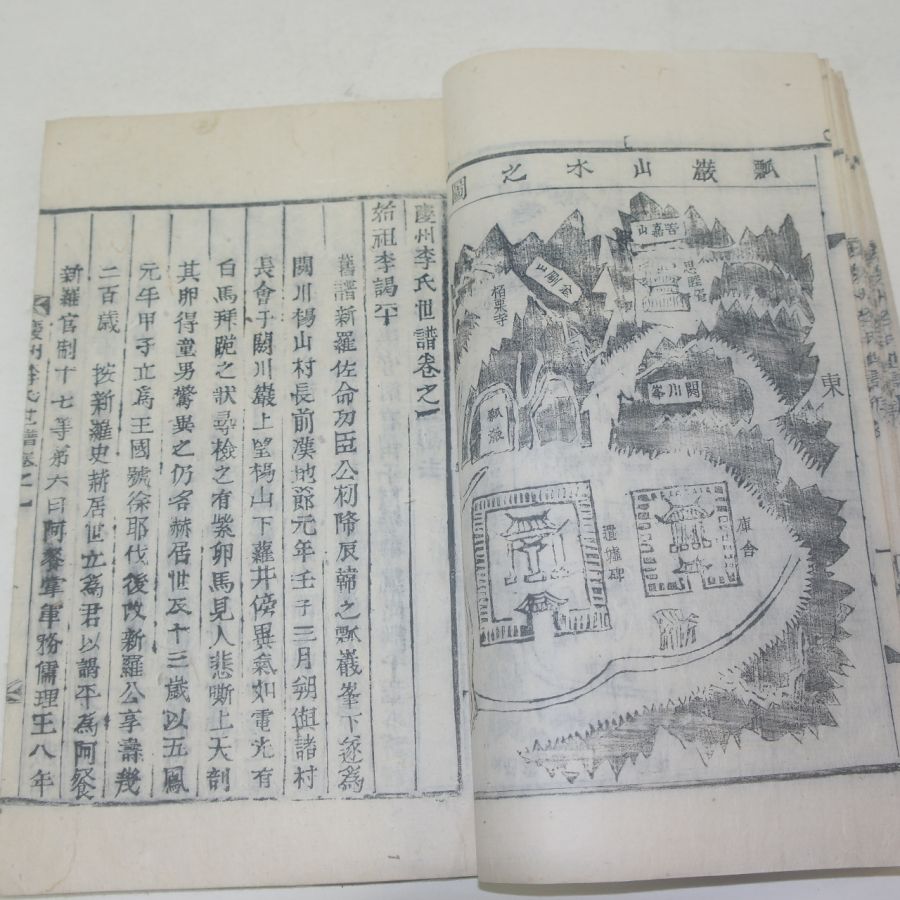 瓢巖山水之圖
苦嘉山
金剛山
栢栗寺
閼川峯
瓢巖
遺墟碑
東
慶州李氏世譜卷之一
始祖李謁平
舊譜新羅佐命功臣公初降辰韓之瓢巖峯下遂爲
閼川楊山村長前漢地節元年壬子三月朔與諸村
長會于閼川巖上望楊山下蘿井傍異氣如電光有
白馬拜跪之狀尋檢之有紫卵馬見人悲嘶上天剖
其卵得童男驚異之仍名赫居世及十三歲以五鳳
元年甲子立爲王國號徐耶伐後改新羅公享壽幾
二百歲 按新羅史赫居世立爲君以謁平爲阿餐
新羅官制十七等第六曰阿餐掌軍務儒理王八年
慶州李氏世譜卷之一